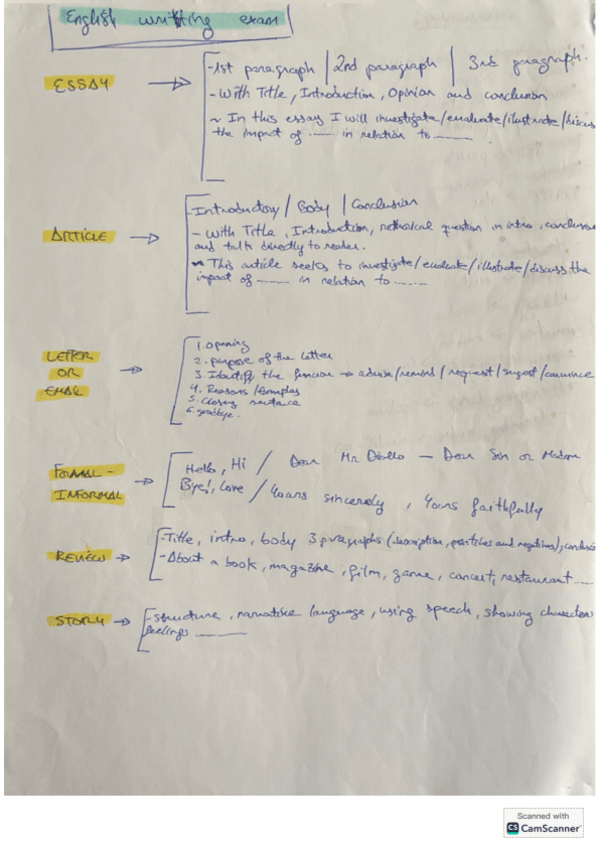 English writting exam
ESSAY → -1st paragraph | 2nd paragraph | 3rd paragraph.
- With Title, Introduction, Opinion and conclusion
~ In this essay I will investigate/evaluate/illustrate/discuss
the impact of ...... in relation to ......
ARTICLE → -Introductory / Body / Conclusion
- With Title, Introduction, rethorical question in intro, conclusion
and talk directly to reader.
~ This article seeks to investigate/evaluate/illustrate/discuss the
impact of ...... in relation to ......
LETTER
OR
EMAIL →
1. opening
2. purpose of the letter
3. Identify the function → advise/remind/request/sugest/convince
4. Reasons/Examples
5. Closing sentence
6. goodbye.
FORMAL -
INFORMAL →
Hello, Hi / Dear Mr Diallo — Dear Sir or Madam
Bye!, Love / Yours sincerely, Yours faithfully
REVIEW → -Title, intro, body 3 paragraphs (description, positives and negatives), conclusion
-About a book, magazine, film, game, concert, restaurant ......
STORY → -structure, narrative language, using speech, showing characters
feelings ......
Scanned with
CS CamScanner